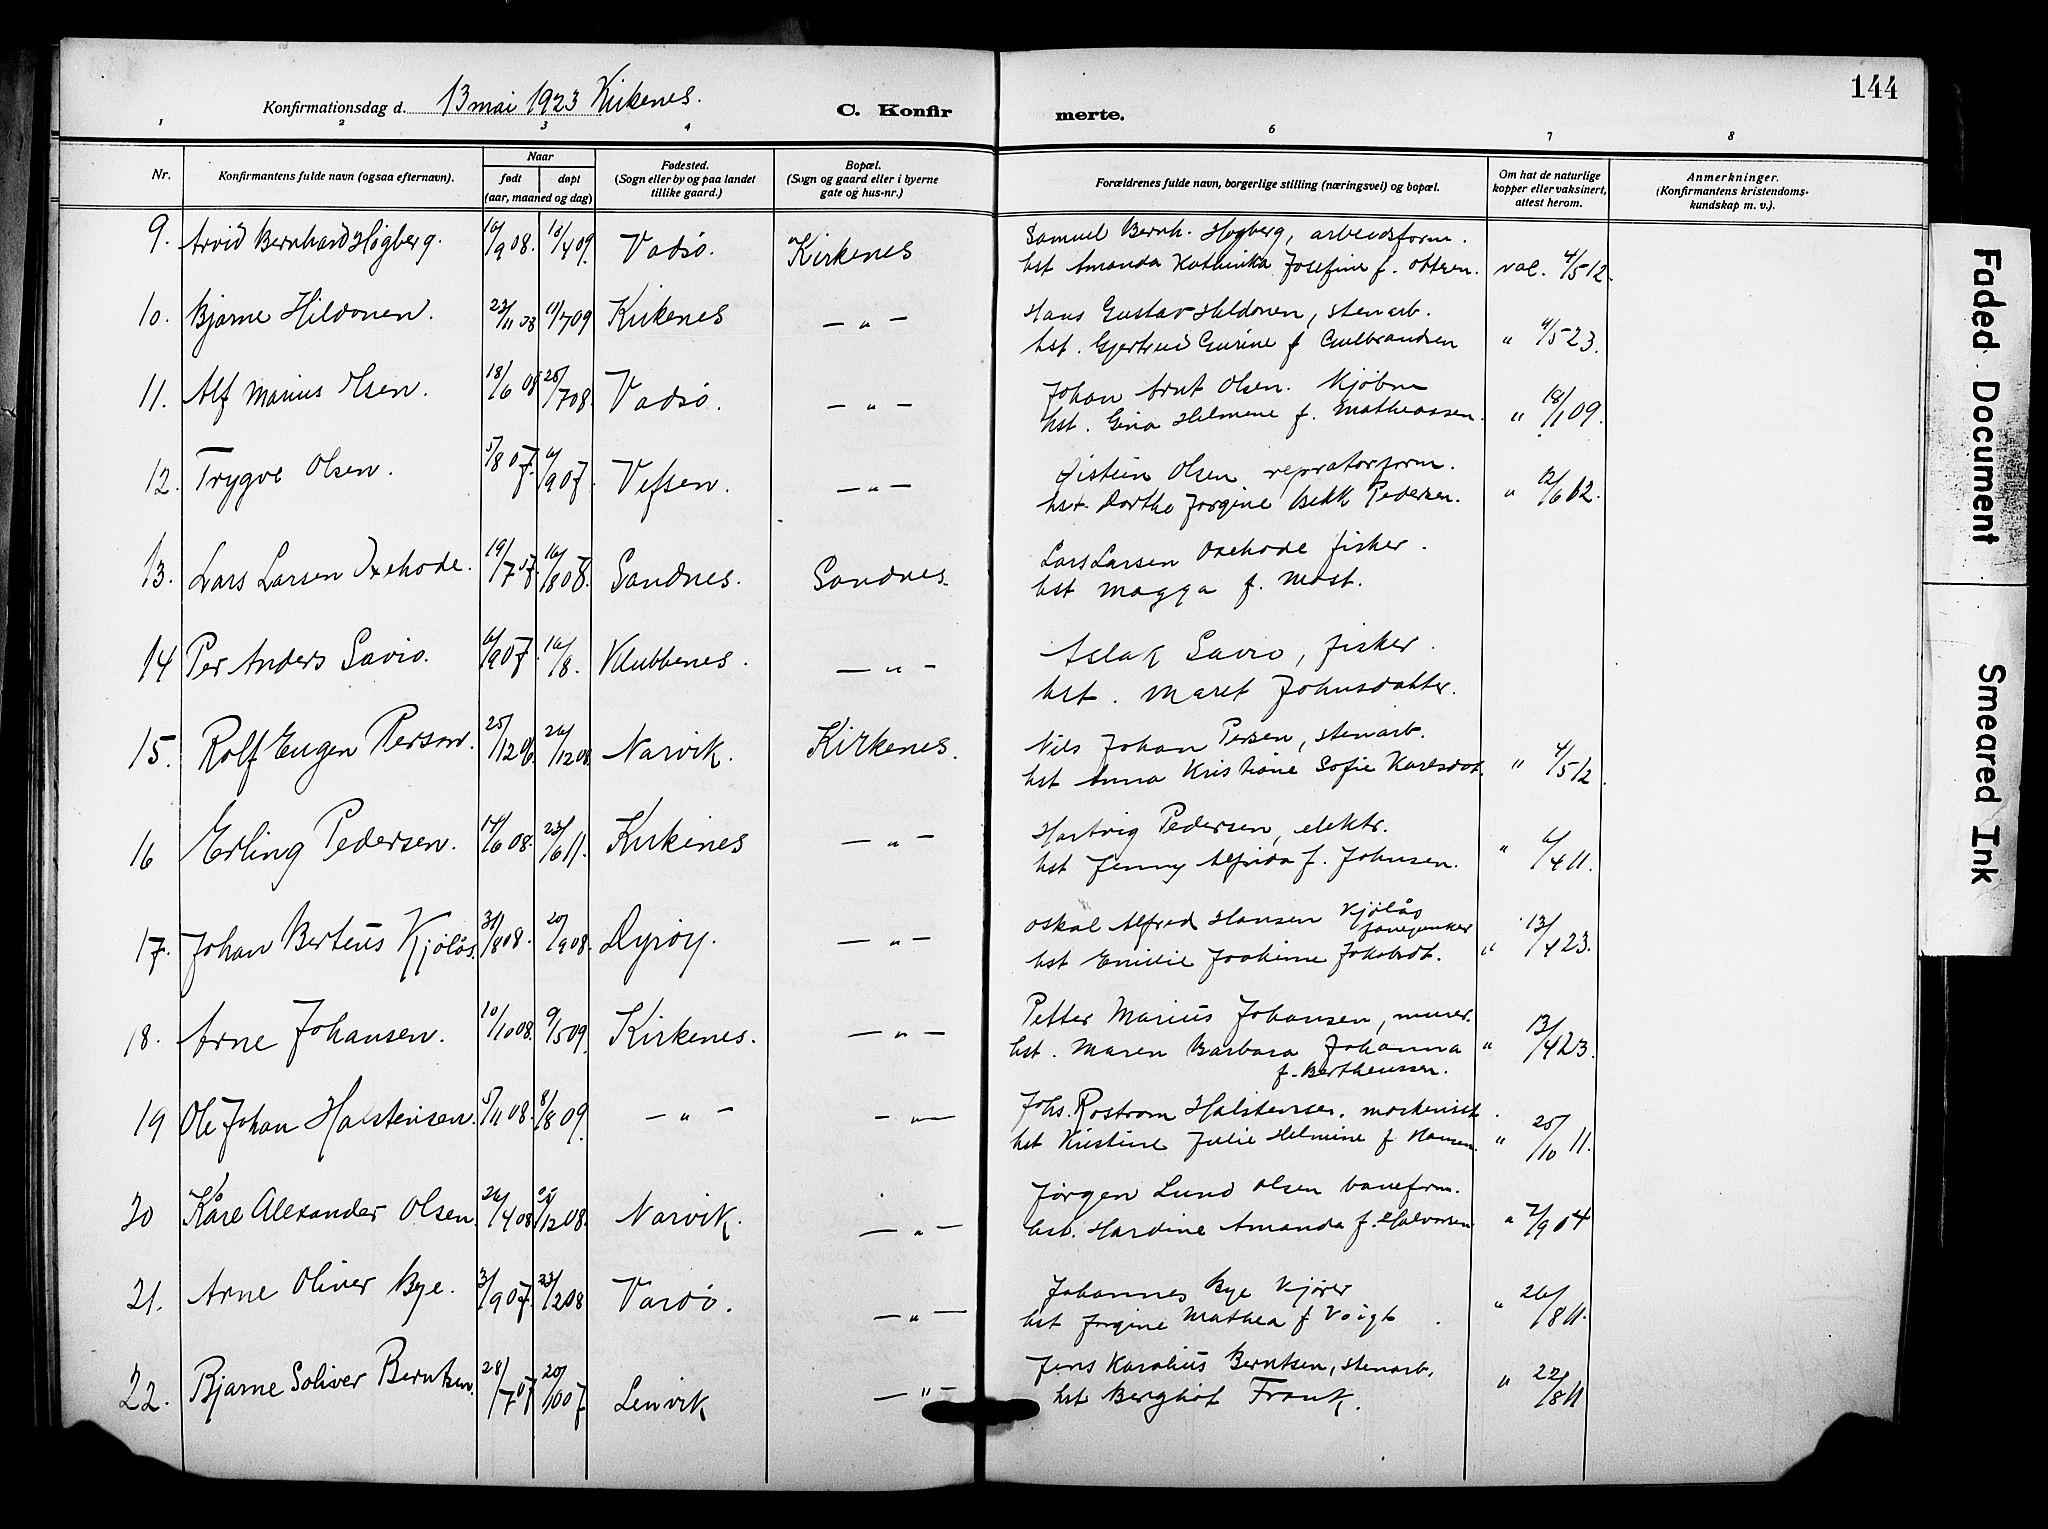 144
Konfirmationsdag d. 13 mai 1923 Kirkenes.
C. Konfir merte.
1 2 3 4 6 7 8
Nr. Konfirmantens fulde navn (ogsaa efternavn). Naar født døpt (aar, maaned og dag) Fødested. (Sogn eller by og paa landet tillike gaard.) Bopæl. (Sogn og gaard eller i byerne gate og hus-nr.) Forældrenes fulde navn, borgerlige stilling (næringsvei) og bopæl. Om hat de naturlige kopper eller vaksinert, attest herom. Anmerkninger. (Konfirmantens kristendoms-kundskap m. v.).
9. Arvid Bernhard Høgberg. 16/9 08. 18/4 09. Vadsø. Kirkenes Samuel Bernh. Høgberg, arbeidsform.
hst Amanda Kathinka Josefine f. Ottsen. vac. 4/5 12.
10. Bjarne Hildonen. 23/11 08 11/7 09 Kirkenes — " — Hans Gustav Hildonen, stenarb.
hst. Gjertrud Gurine f Gulbrandsen " 4/5 23.
11. Alf Marius Olsen. 18/6 08 25/7 08. Vadsø. — " — Johan Arnt Olsen. Kjøbm
hst. Gina Helmine f. Matheassen. " 18/1 09.
12. Trygve Olsen. 5/8 07. 6/9 07. Vefsen. — " — Øistein Olsen repratørform.
hst. Dorthe Jorgine Bekk Pedersen. " 12/6 12.
13. Lars Larsen Oxehode. 19/7 08 16/8 08. Sandnes. Sandnes. Lars Larsen Oxehode fisker.
hst Magga f. Mast.
14 Per Anders Savio. 6/9 07. 16/8. Klubbenes. — " — Aslak Savio, fisker.
hst. Maret Johnsdatter.
15. Rolf Eugen Person. 25/12 06. 26/12 08 Narvik. Kirkenes. Nils Johan Persen, stenarb.
hst Anna Kristiane Sofie Karlsdat. " 4/5 12
16 Erling Pedersen. 14/6 08. 23/6 11. Kirkenes — " — Hartvig Pedersen, elektr.
hst Jenny Alfrida f. Johnsen. " 6/4 11.
17. Johan Berteus Kjølås. 31/8 08. 20/9 08. Dyrøy. — " — Oskal Alfred Hansen Kjølås
hst Emilie Joakime Jakobsdt. " 13/4 23.
18. Arne Johansen. 10/10 08. 9/5 09. Kirkenes. — " — Petter Marius Johansen, murer.
hst. Maren Barbara Johanna " 13/4 23.
f. Bertheussen.
19 Ole Johan Halstensen. 5/11 08. 8/8 09. — " — — " — Johs. Rostrøm Halstensen. maskinist.
hst Kristine Julie Helmine f Hansen. " 25/10 11.
20 Kåre Alexander Olsen 26/4 08 /12 08. Narvik. — " — Jørgen Lund Olsen baneform.
hst. Hardine Amanda f. Halvorsen " 7/9 04
21. Arne Oliver Bye. 3/9 07. 23/2 08 Vardø. — " — Johannes Bye Kjører
hst Jorgine Mathea f Voigt. " 26/8 11.
22. Bjarne Soliver Berntsen. 28/7 07 20/10 07 Lenvik — " — Jens Karolius Berntsen, stenarb.
hst Berghot Frank. " 22/8 11
Faded Document
Smeared Ink